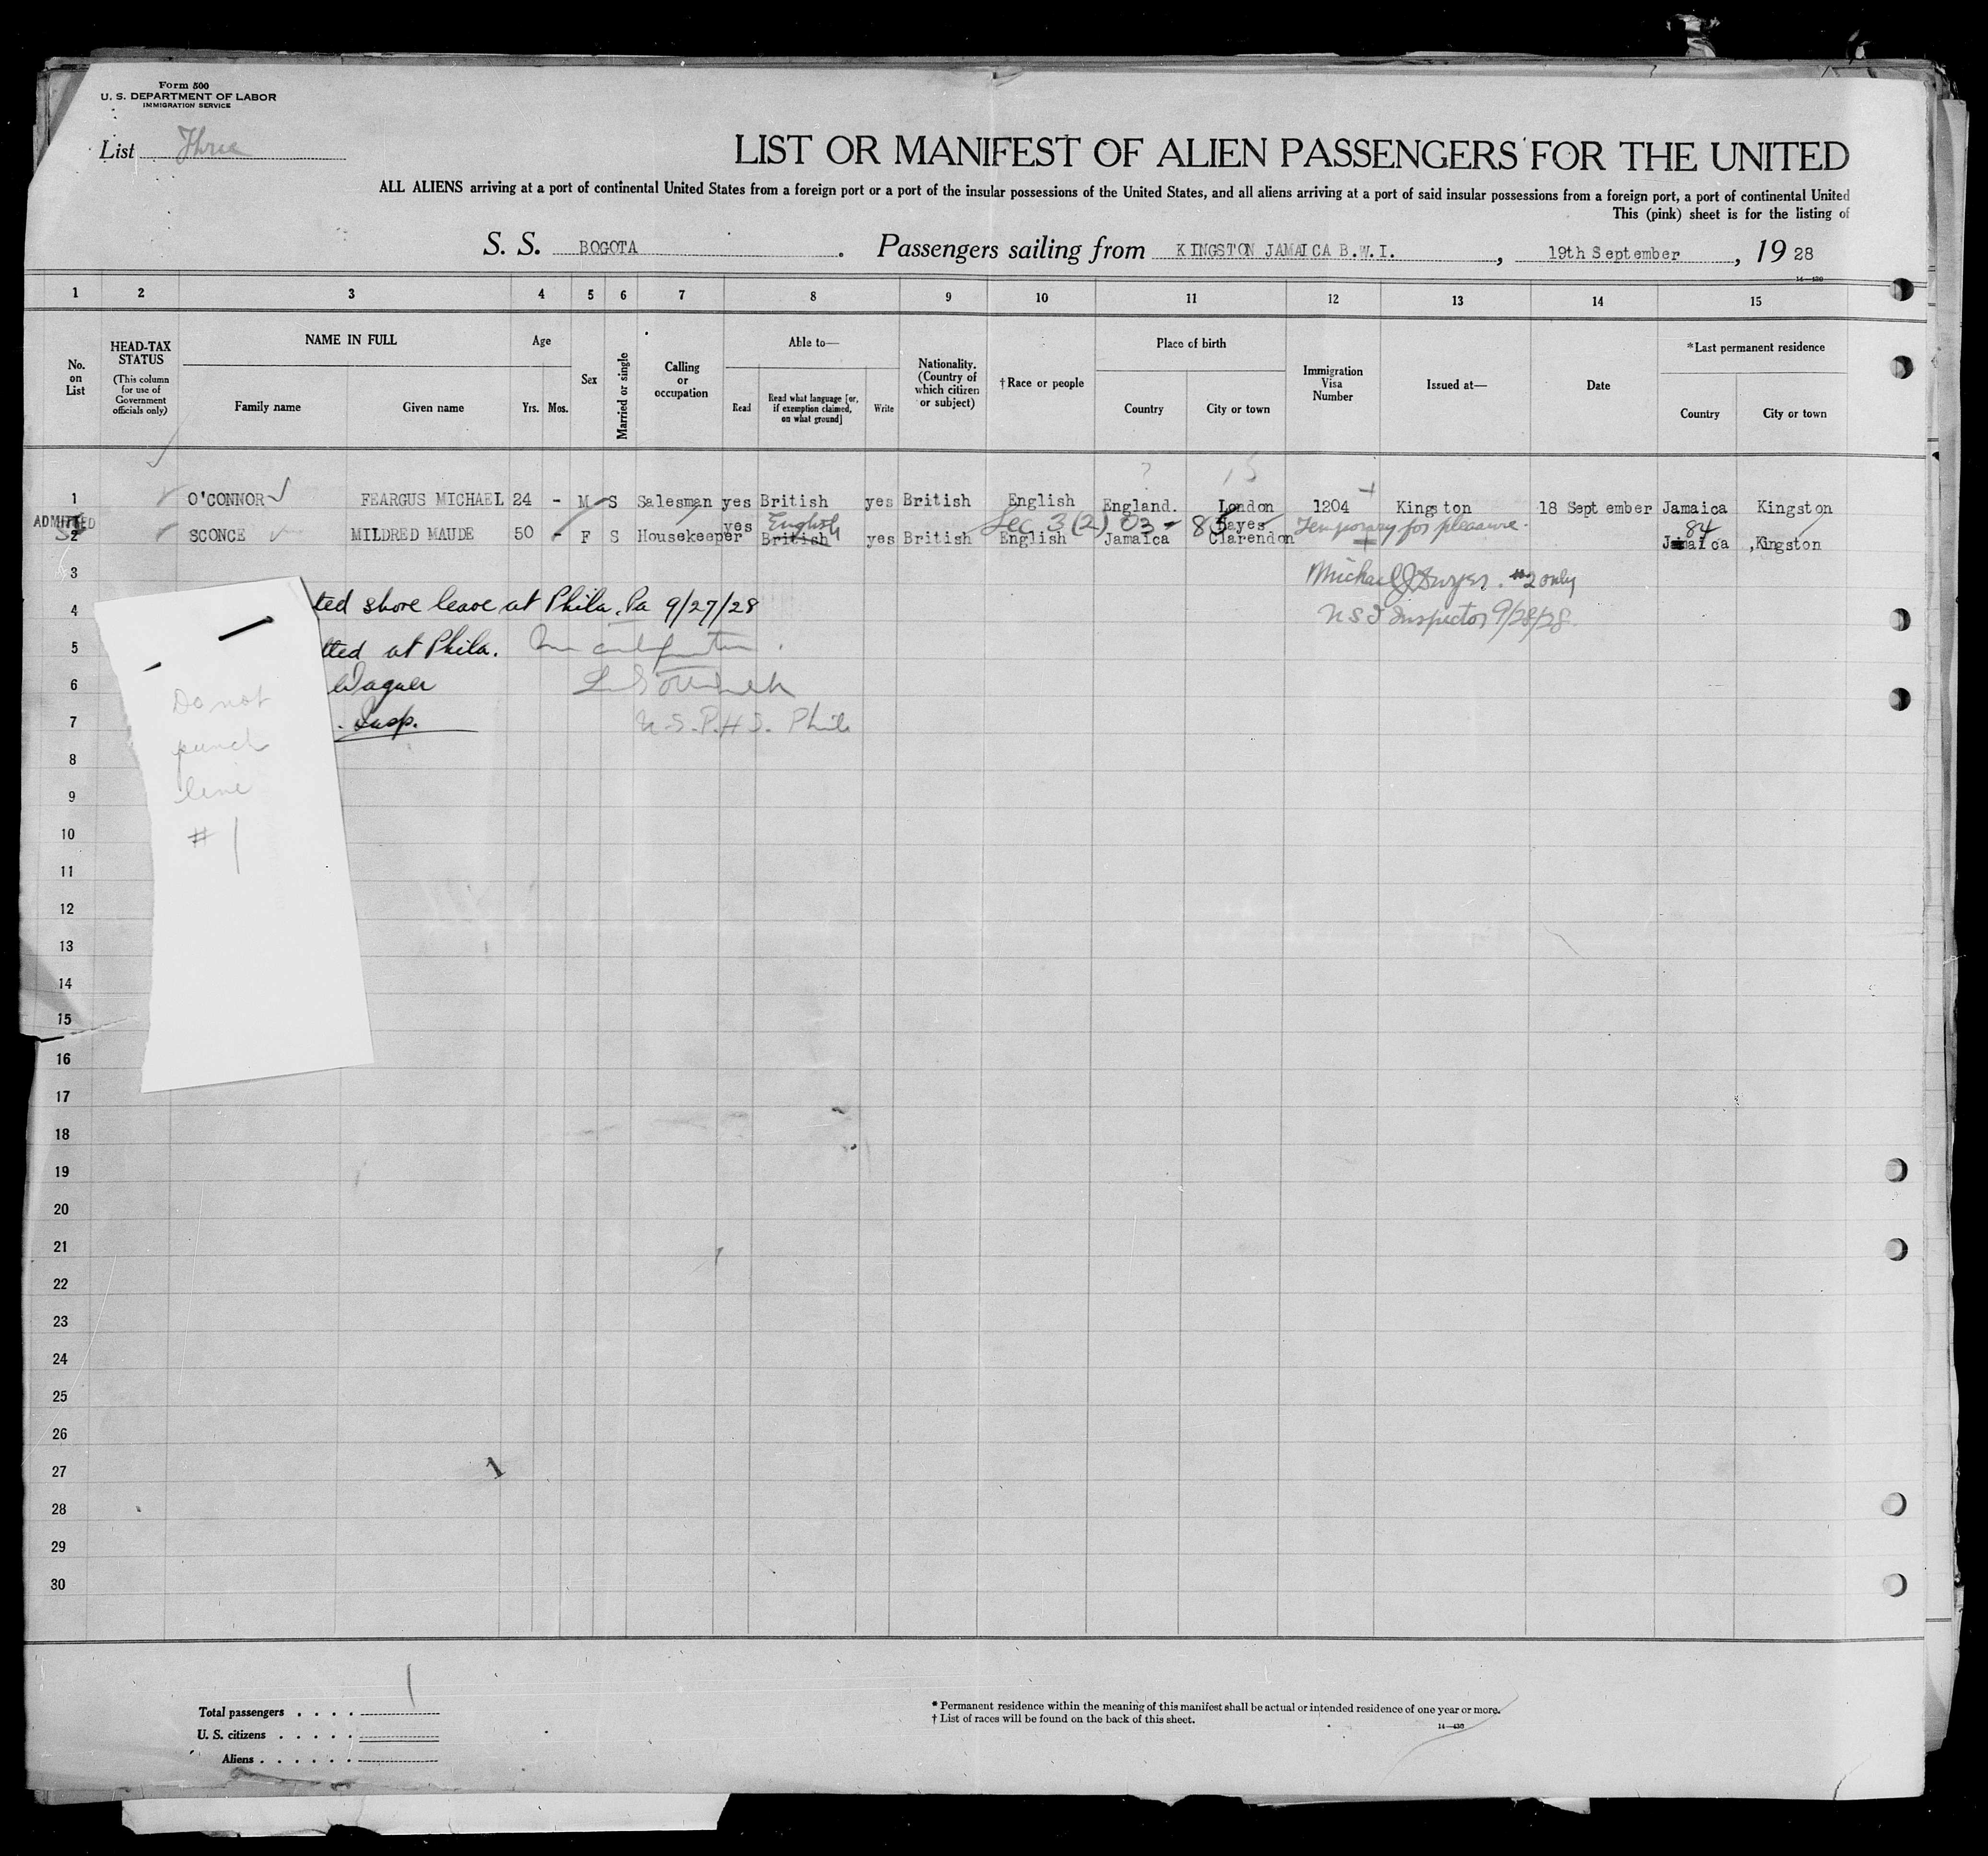 Form 500
U. S. DEPARTMENT OF LABOR
IMMIGRATION SERVICE
List Three
LIST OR MANIFEST OF ALIEN PASSENGERS FOR THE UNITED
ALL ALIENS arriving at a port of continental United States from a foreign port or a port of the insular possessions of the United States, and all aliens arriving at a port of said insular possessions from a foreign port, a port of continental United
This (pink) sheet is for the listing of
S. S. BOGOTA . Passengers sailing from KINGSTON JAMAICA B.W.I. , 19th September , 19 28
14—430
1 2 3 4 5 6 7 8 9 10 11 12 13 14 15
No. on List
HEAD-TAX STATUS
(This column for use of Government officials only)
NAME IN FULL
Family name Given name
Age
Yrs. Mos.
Sex
Married or single
Calling or occupation
Able to—
Read
Read what language [or, if exemption claimed, on what ground]
Write
Nationality. (Country of which citizen or subject)
†Race or people
Place of birth
Country City or town
Immigration Visa Number
Issued at—
Date
*Last permanent residence
Country City or town
? 15
1 O'CONNOR FEARGUS MICHAEL 24 - M S Salesman yes British yes British English England. London 1204 Kingston 18 September Jamaica Kingston
ADMITTED
yes English Sec. 3(2) 03 - 85 Hayes Temporary for pleasure. 84
2 SCONCE MILDRED MAUDE 50 - F S Housekeeper British yes British English Jamaica Clarendon Jamaica ,Kingston
3
Michael J Dwyer. #2 only
4 ted shore leave at Phila. Pa 9/27/28
Inspector 9/28/28.
5 tted at Phila.
6 Wagner
7 . Insp.
U.S.P.H.S. Phila
Do not
punch
line
# 1
8
9
10
11
12
13
14
15
16
17
18
19
20
21
22
23
24
25
26
27
1
28
29
30
1
Total passengers . . . .
U. S. citizens . . . . .
Aliens . . . . . .
* Permanent residence within the meaning of this manifest shall be actual or intended residence of one year or more.
† List of races will be found on the back of this sheet.
14—430